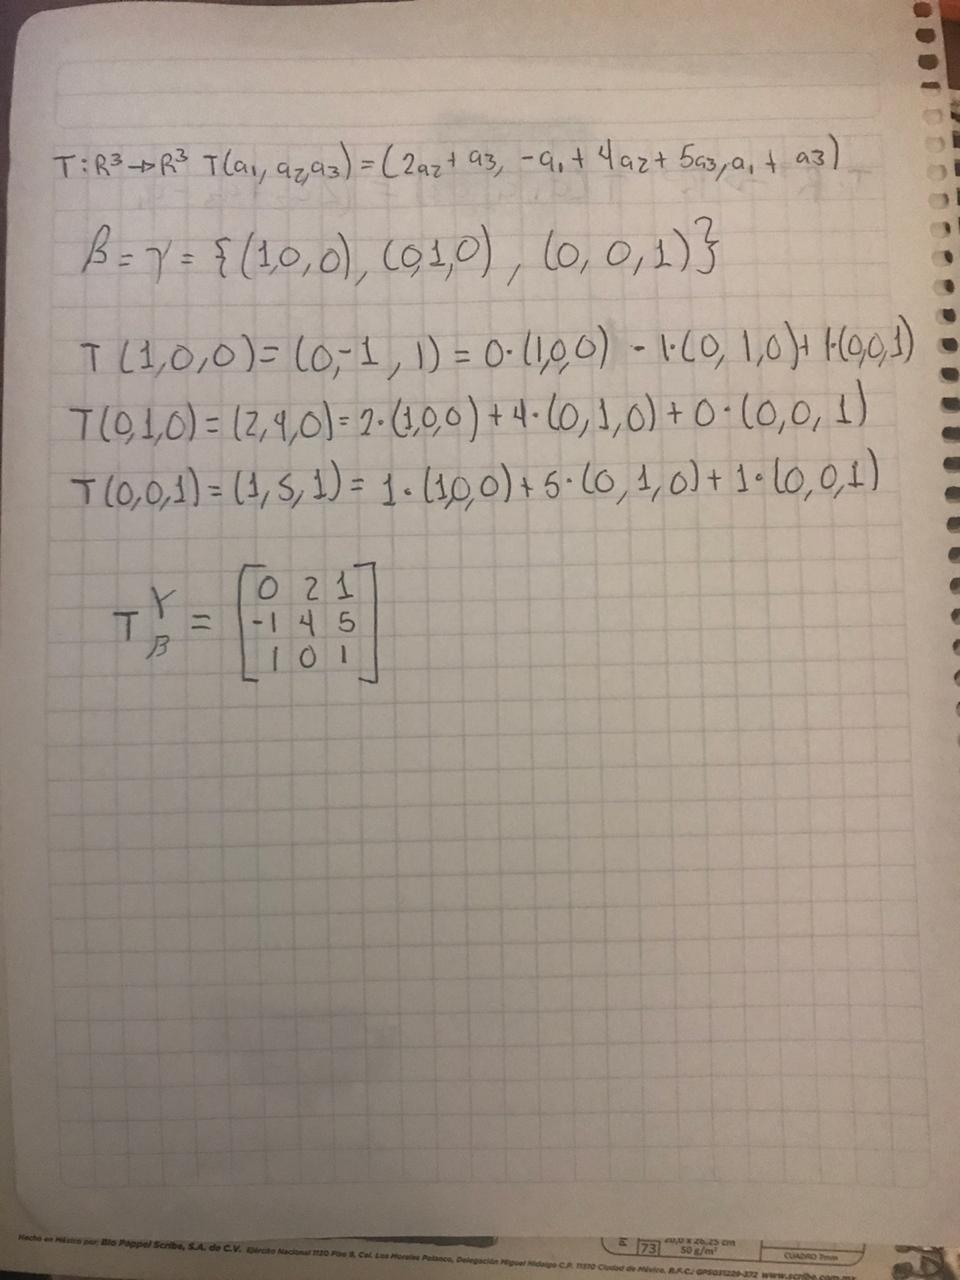 T:R³→R³ T(a₁, a₂,a₃)=(2a₂+a₃, -a₁+4a₂+5a₃,a₁+ a₃)
β=γ={(1,0,0),(0,1,0),(0,0,1)}
T(1,0,0)=(0,-1,1)=0·(1,0,0) - 1·(0,1,0)+1·(0,0,1)
T(0,1,0)=(2,4,0)=2·(1,0,0)+4·(0,1,0)+0·(0,0,1)
T(0,0,1)=(1,5,1)=1·(1,0,0)+5·(0,1,0)+1·(0,0,1)
0 2 1
T γ β = -1 4 5
1 0 1
Hecho en México por: Bio Pappel Scribe, S.A. de C.V. Ejército Nacional 1130 Piso 9, Col. Los Morales Polanco, Delegación Miguel Hidalgo C.P. 11510 Ciudad de México, R.F.C.: www.scribe.com
73
50 g/m²
CUADRO 7mm